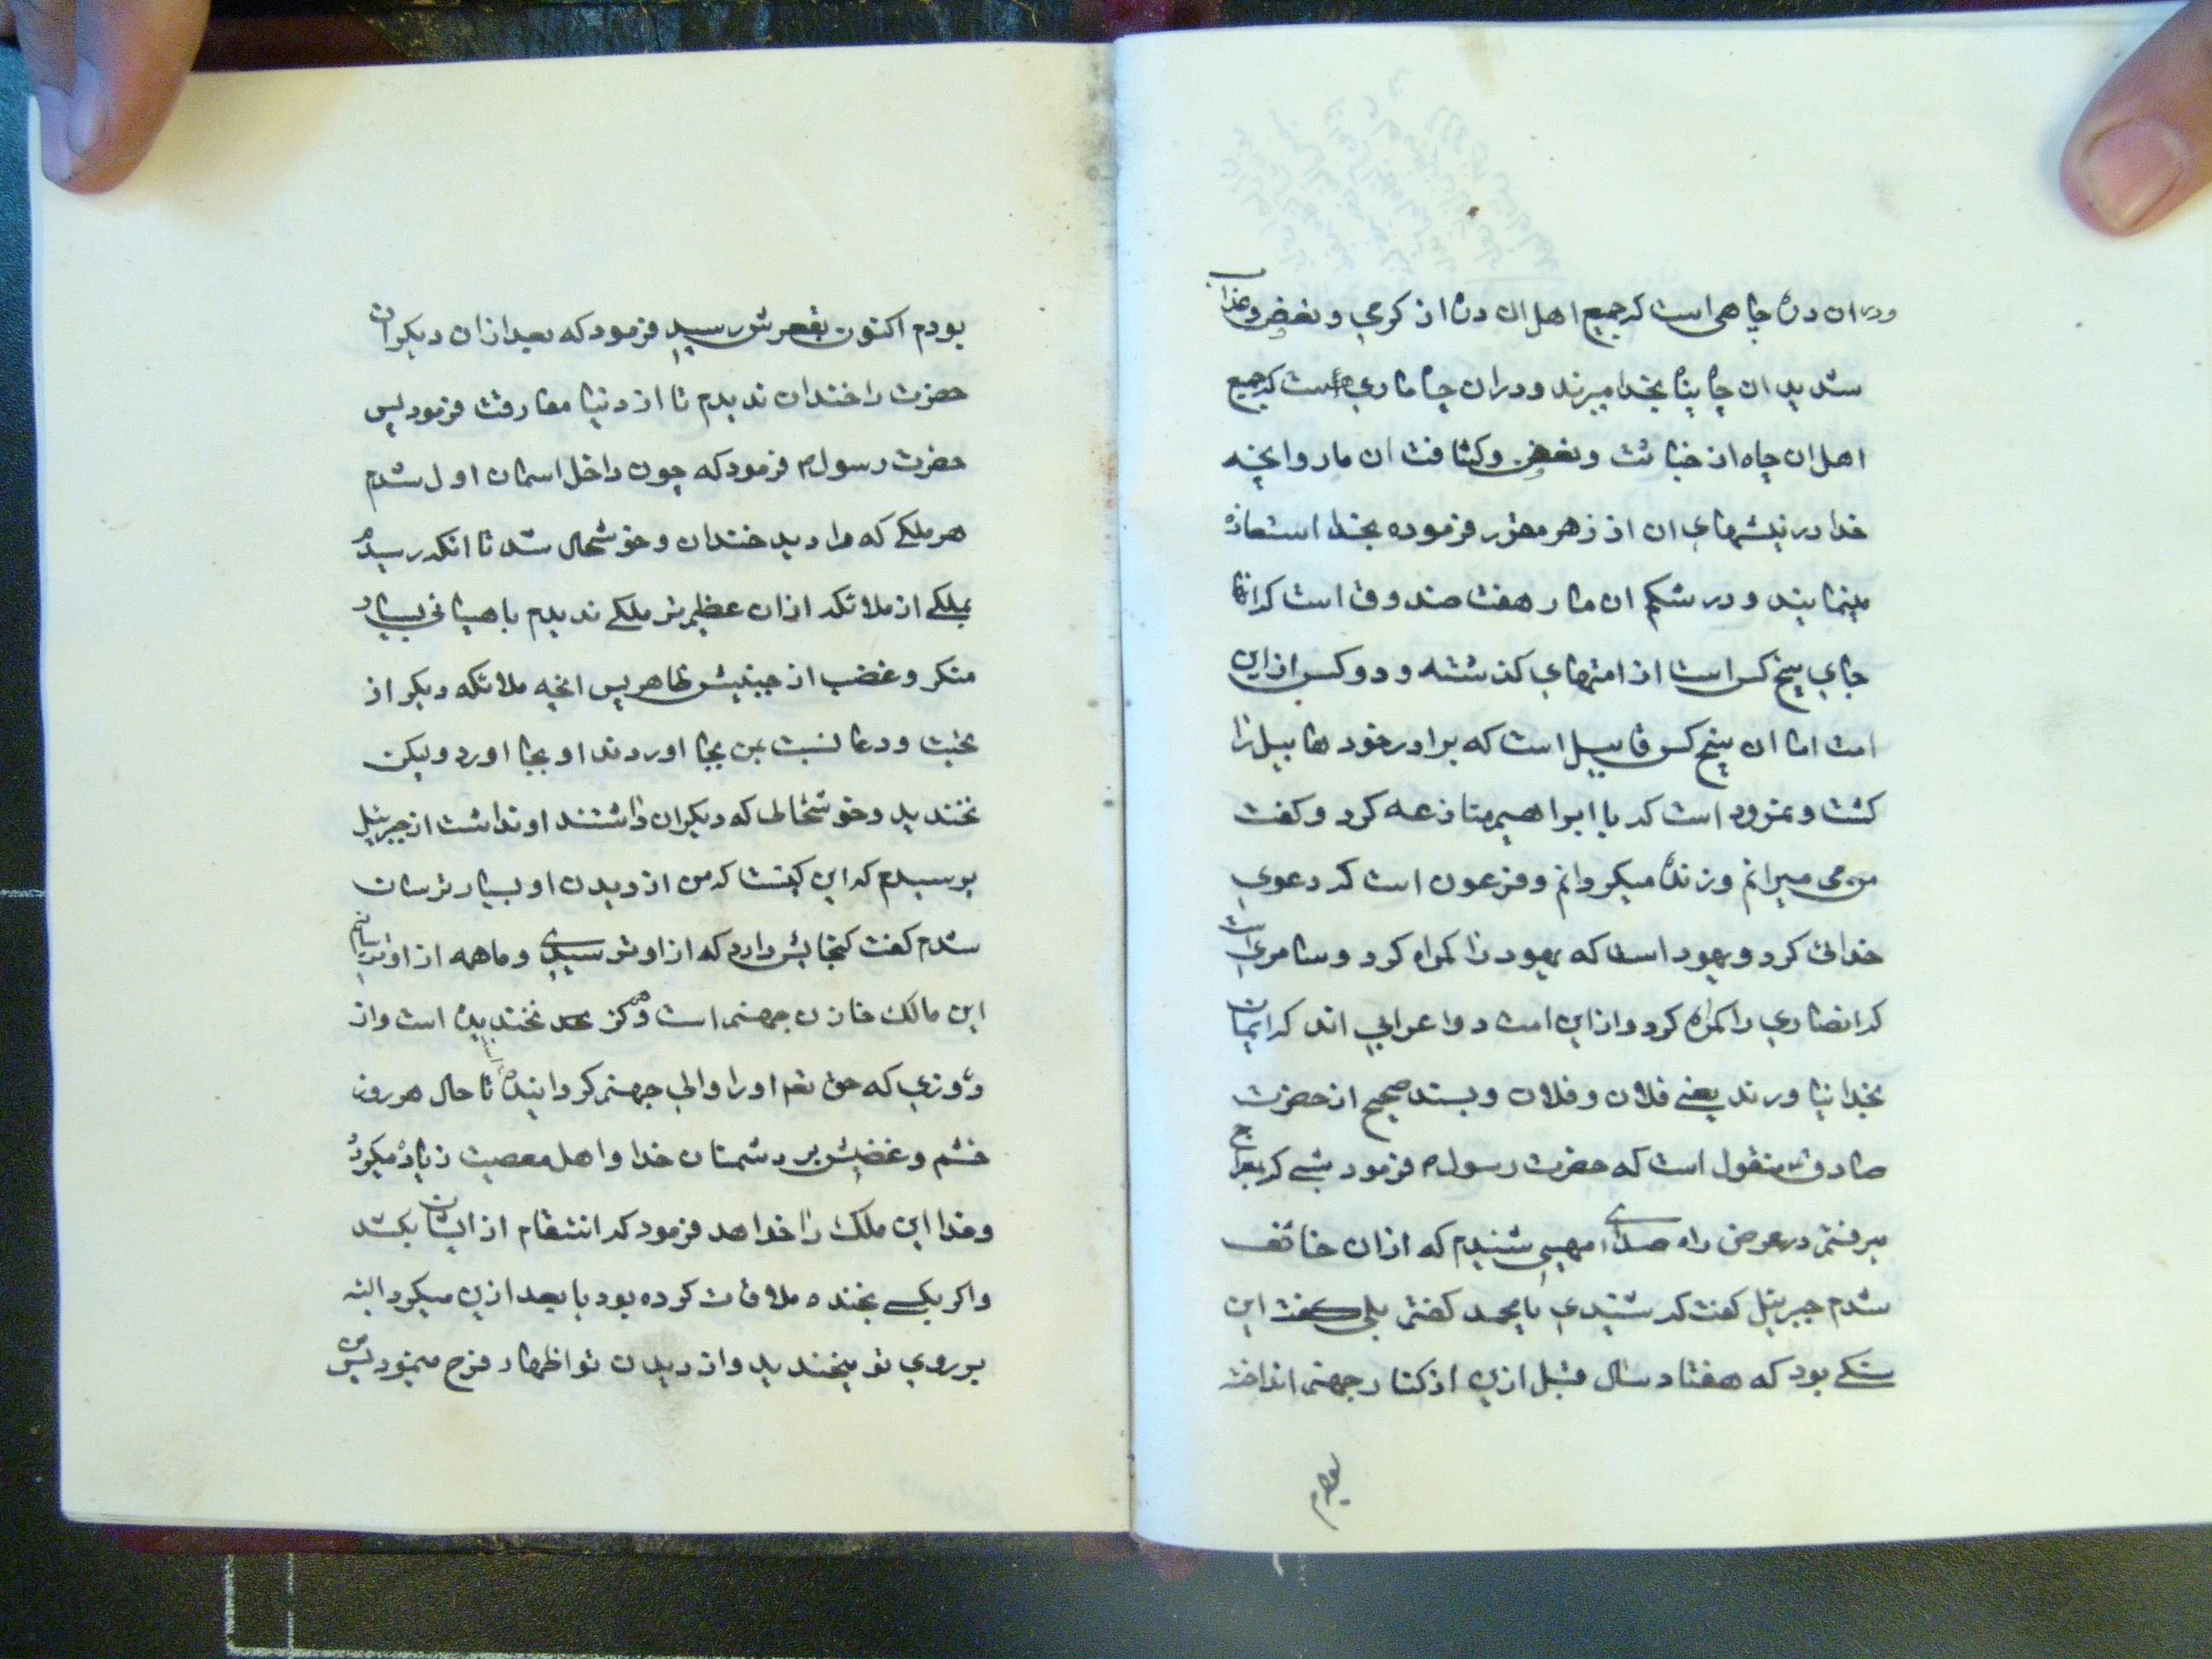 ودر ان درۀ چاهی است که جمیع اهل ان درۀ از کرمی و تعفن و عذاب
شدید ان چاه پناه بخدا میبرند و در ان چاه ماری است که جمیع
اهل ان چاه از خباثت و تعفن و کثافت ان مار وانچه
خدا در نیشهای ان از زهر مقرر فرموده بخدا استعاذه
مینمایند و در شکم ان مار هفت صندوق است که انها
جای پنج کس است از امتهای کذشته و دو کس از این
امت اما ان پنج کس قابیل است که برادر خود هابیل را
کشت و نمرود است که با ابراهیم منازعه کرد و کفت
من می میرانم و زنده میکردانم و فرعون است که دعوی
خدائی کرد و یهود است که یهود را کمراه کرد و سامری است
که انصاری را کمراه کرد و از این امت دو اعرابی اند که ایمان
بخدا نیاورند یعنی فلان و فلان و بسند صحیح از حضرت
صادق منقول است که حضرت رسول فرمود شبی که بمعراج
میرفتم در عرض راه صدای مهیبی شنیدم که از ان خائف
شدم جبرئیل کفت که شنیدی یا محمد کفتم بلی کفت این
سنکی بود که هفتاد سال قبل ازین از کنار جهنم انداخته
بودم اکنون بقعرش رسید فرمود که بعد از ان دیکر ان
حضرت را خندان ندیدم تا از دنیا مفارقت فرمود پس
حضرت رسول فرمود که چون داخل اسمان اول شدم
هر ملکی که مرا دید خندان و خوشحال شد تا انکه رسیدم
بملکی از ملائکه از ان عظیم تر ملکی ندیدم با هیئاتی بسیار
منکر و غضب از جبینش ظاهر پس انچه ملائکه دیکر از
تحیت و دعا نسبت بمن بجا اوردند او بجا اورد و لیکن
نخندید و خوشحالی که دیکران داشتند او نداشت از جبرئیل
پرسیدم که این کیست که من از دیدن او بسیار ترسان
شدم کفت کنجایش دارد که از او ترسیدی و ما همه از او ترسانیم
این مالک خازن جهنم است و هرکز نخندیده است و از
روزی که حق تعم او را والی جهنم کردانیده است تا حال هر روز
خشم و غضبش بر دشمنان خدا و اهل معصیت زیاده میکردد
و خدا این ملک را خواهد فرمود که انتقام از ایشان بکشد
و اکر بیکی بخنده ملاقات کرده بود یا بعد ازین میکرد البته
بر روی تو میخندید و از دیدن تو اظهار فرح مینمود پس من